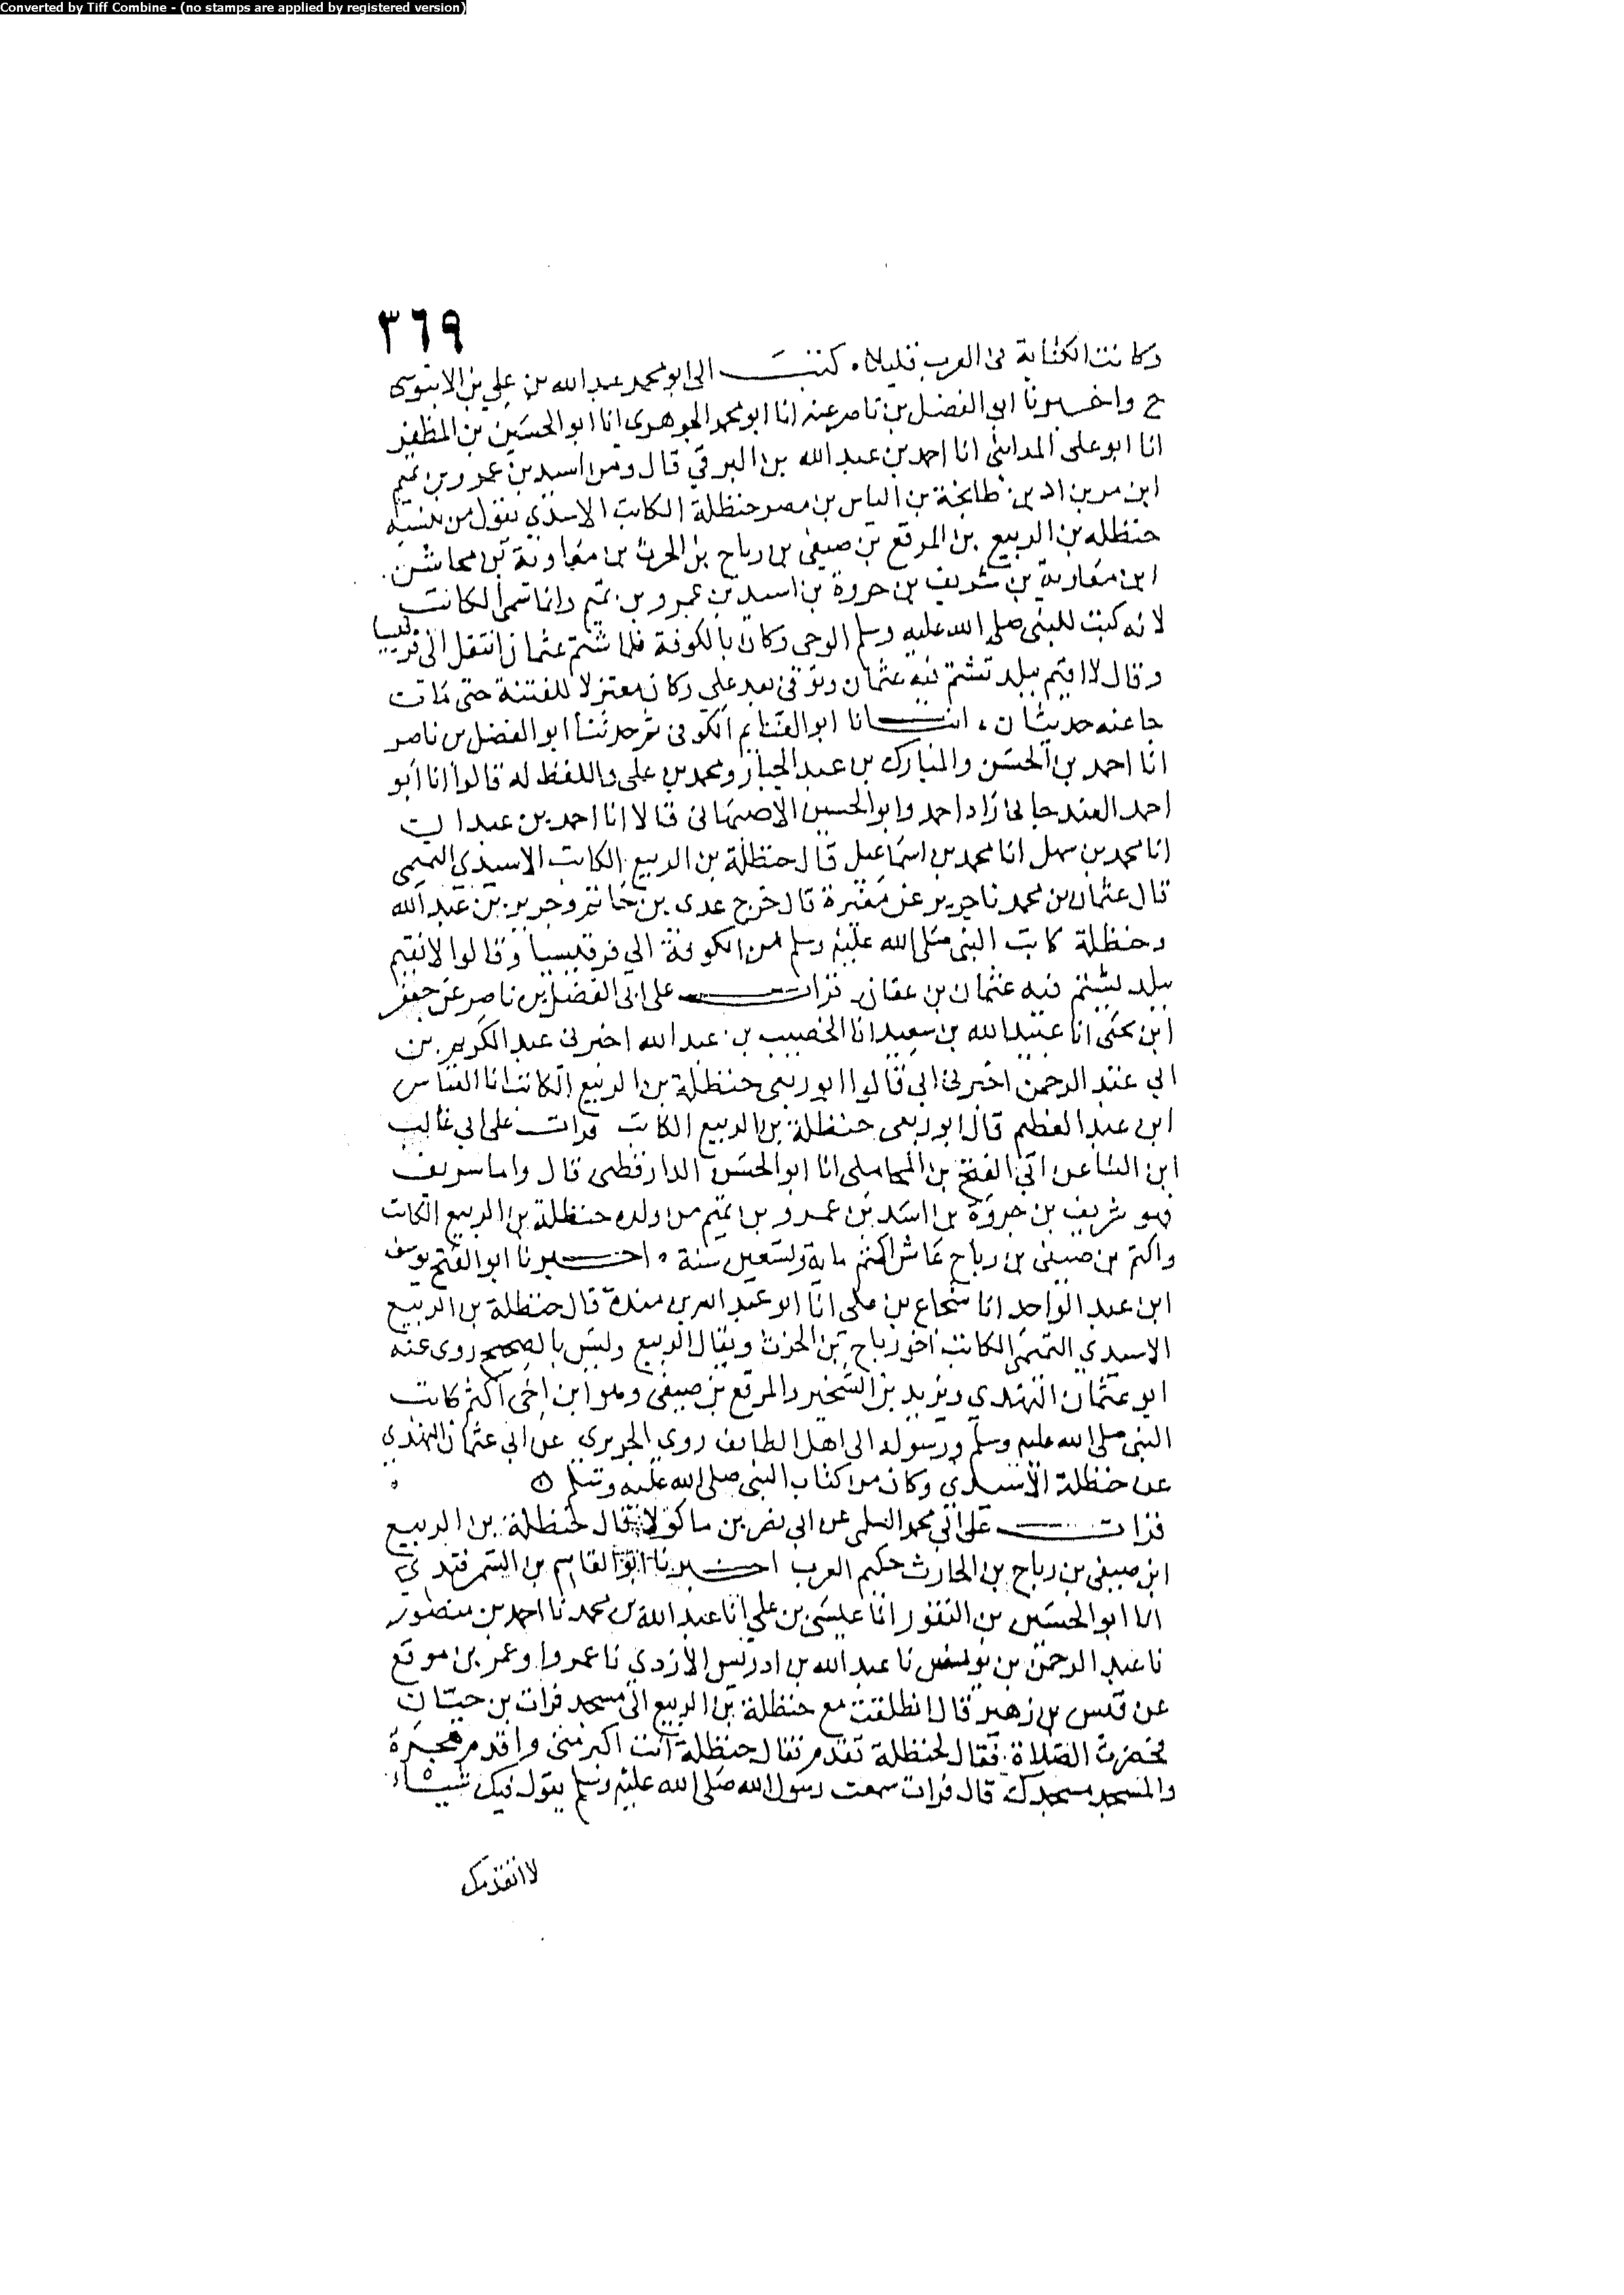 Converted by Tiff Combine - (no stamps are applied by registered version)
٣٦٩
وكانت الكتابة في العرب قليلا. كتب الى ابو محمد عبد الله بن علي بن الابنوسى
ح واخبرنا ابو الفضل بن ناصر عنه انا ابو محمد الجوهرى انا ابو الحسين بن المظفر
انا ابو على المداينى انا احمد بن عبد الله بن البرقي قال ومن اسيد بن عمرو بن تميم
ابن مر بن اد بن طابخة بن الياس بن مضر حنظلة الكاتب الاسيدي يقول من ينسبه
حنظله بن الربيع بن المرقع بن صيفى بن رباح بن الحرث بن معاوية بن مخاشن
ابن معاوية بن شريف بن جروة بن اسيد بن عمرو بن تميم وانما سمى الكاتب
لانه كتب للنبى صلى الله عليه وسلم الوحى وكان بالكوفة فلما شتم عثمان انتقل الى قرقيسيا
وقال لا اقيم ببلد تشتم فيه عثمان وتوفى بعد على وكان معتزلا للفتنة حتى مات
جا عنه حديثان . انبانا ابو الغنايم الكوفى ثم حدثنا ابو الفضل بن ناصر
انا احمد بن الحسن والمبارك بن عبد الجبار ومحمد بن على واللفظ له قالوا انا ابو
احمد الغندجانى زاد احمد وابو الحسين الاصبهانى قالا انا احمد بن عبدان
انا محمد بن سهل انا محمد بن اسماعيل قال حنظلة بن الربيع الكاتب الاسيدي التميمى
قال عثمان بن محمد نا جرير عن مغيرة قال خرج عدى بن حاتم وجرير بن عبد الله
وحنظلة كاتب النبى صلى الله عليه وسلم من الكوفة الي قرقيسيا وقالوا لا نقيم
ببلد يشتم فيه عثمان بن عفان. قرات على ابى الفضل بن ناصر عن جعفر
ابن يحيى انا عبيد الله بن سعيد انا الخصيب بن عبد الله اخبرنى عبد الكريم بن
ابي عبد الرحمن اخبرنى ابى قال ابو ربعى حنظلة بن الربيع الكاتب انا العباس
ابن عبد العظيم قال ابو ربعى حنظلة بن الربيع الكاتب قرات على ابى غالب
ابن البنا عن ابى الفتح بن المحاملى انا ابو الحسن الدارقطنى قال واما شريف
فهو شريف بن جروة بن اسيد بن عمرو بن تميم من ولده حنظلة بن الربيع الكاتب
واكثم بن صيفى بن رباح عاش اكثم ماية وتسعين سنة . اخبرنا ابو الفتح يوسف
ابن عبد الواحد انا شجاع بن على انا ابو عبد الله بن مندة قال حنظلة بن الربيع
الاسيدي التميمى الكاتب اخو رباح بن الحرث ويقال الربيع وليس بالصحيح روى عنه
ابو عثمان النهدي ويزيد بن الشخير والمرقع بن صيفى وهو ابن اخى اكثم كاتب
النبى صلى الله عليه وسلم ورسوله الى اهل الطايف روي الجريري عن ابي عثمان النهدي
عن حنظلة الاسيدي وكان من كتاب النبى صلى الله عليه وسلم
قرات على ابى محمد السلمى عن ابى نصر بن ماكولا قال حنظلة بن الربيع
ابن صيفى بن رباح بن الحارث حكيم العرب اخبرنا ابو القاسم بن السمرقندي
انا ابو الحسين بن النقور انا عيسى بن علي انا عبد الله بن محمد نا احمد بن منصور
نا عبد الرحمن بن يونس نا عبد الله بن ادريس الازدي نا عمروا وعمر بن موقع
عن قيس بن زهير قال انطلقت مع حنظلة بن الربيع الى مسجد فرات بن حيان
فحضرت الصلاة فقال لحنظلة تقدم فقال حنظلة انت اكبر منى واقدم هجرة
والمسجد مسجدك قال فرات سمعت رسول الله صلى الله عليه وسلم يقول فيك شيئا
لا اتقدمك